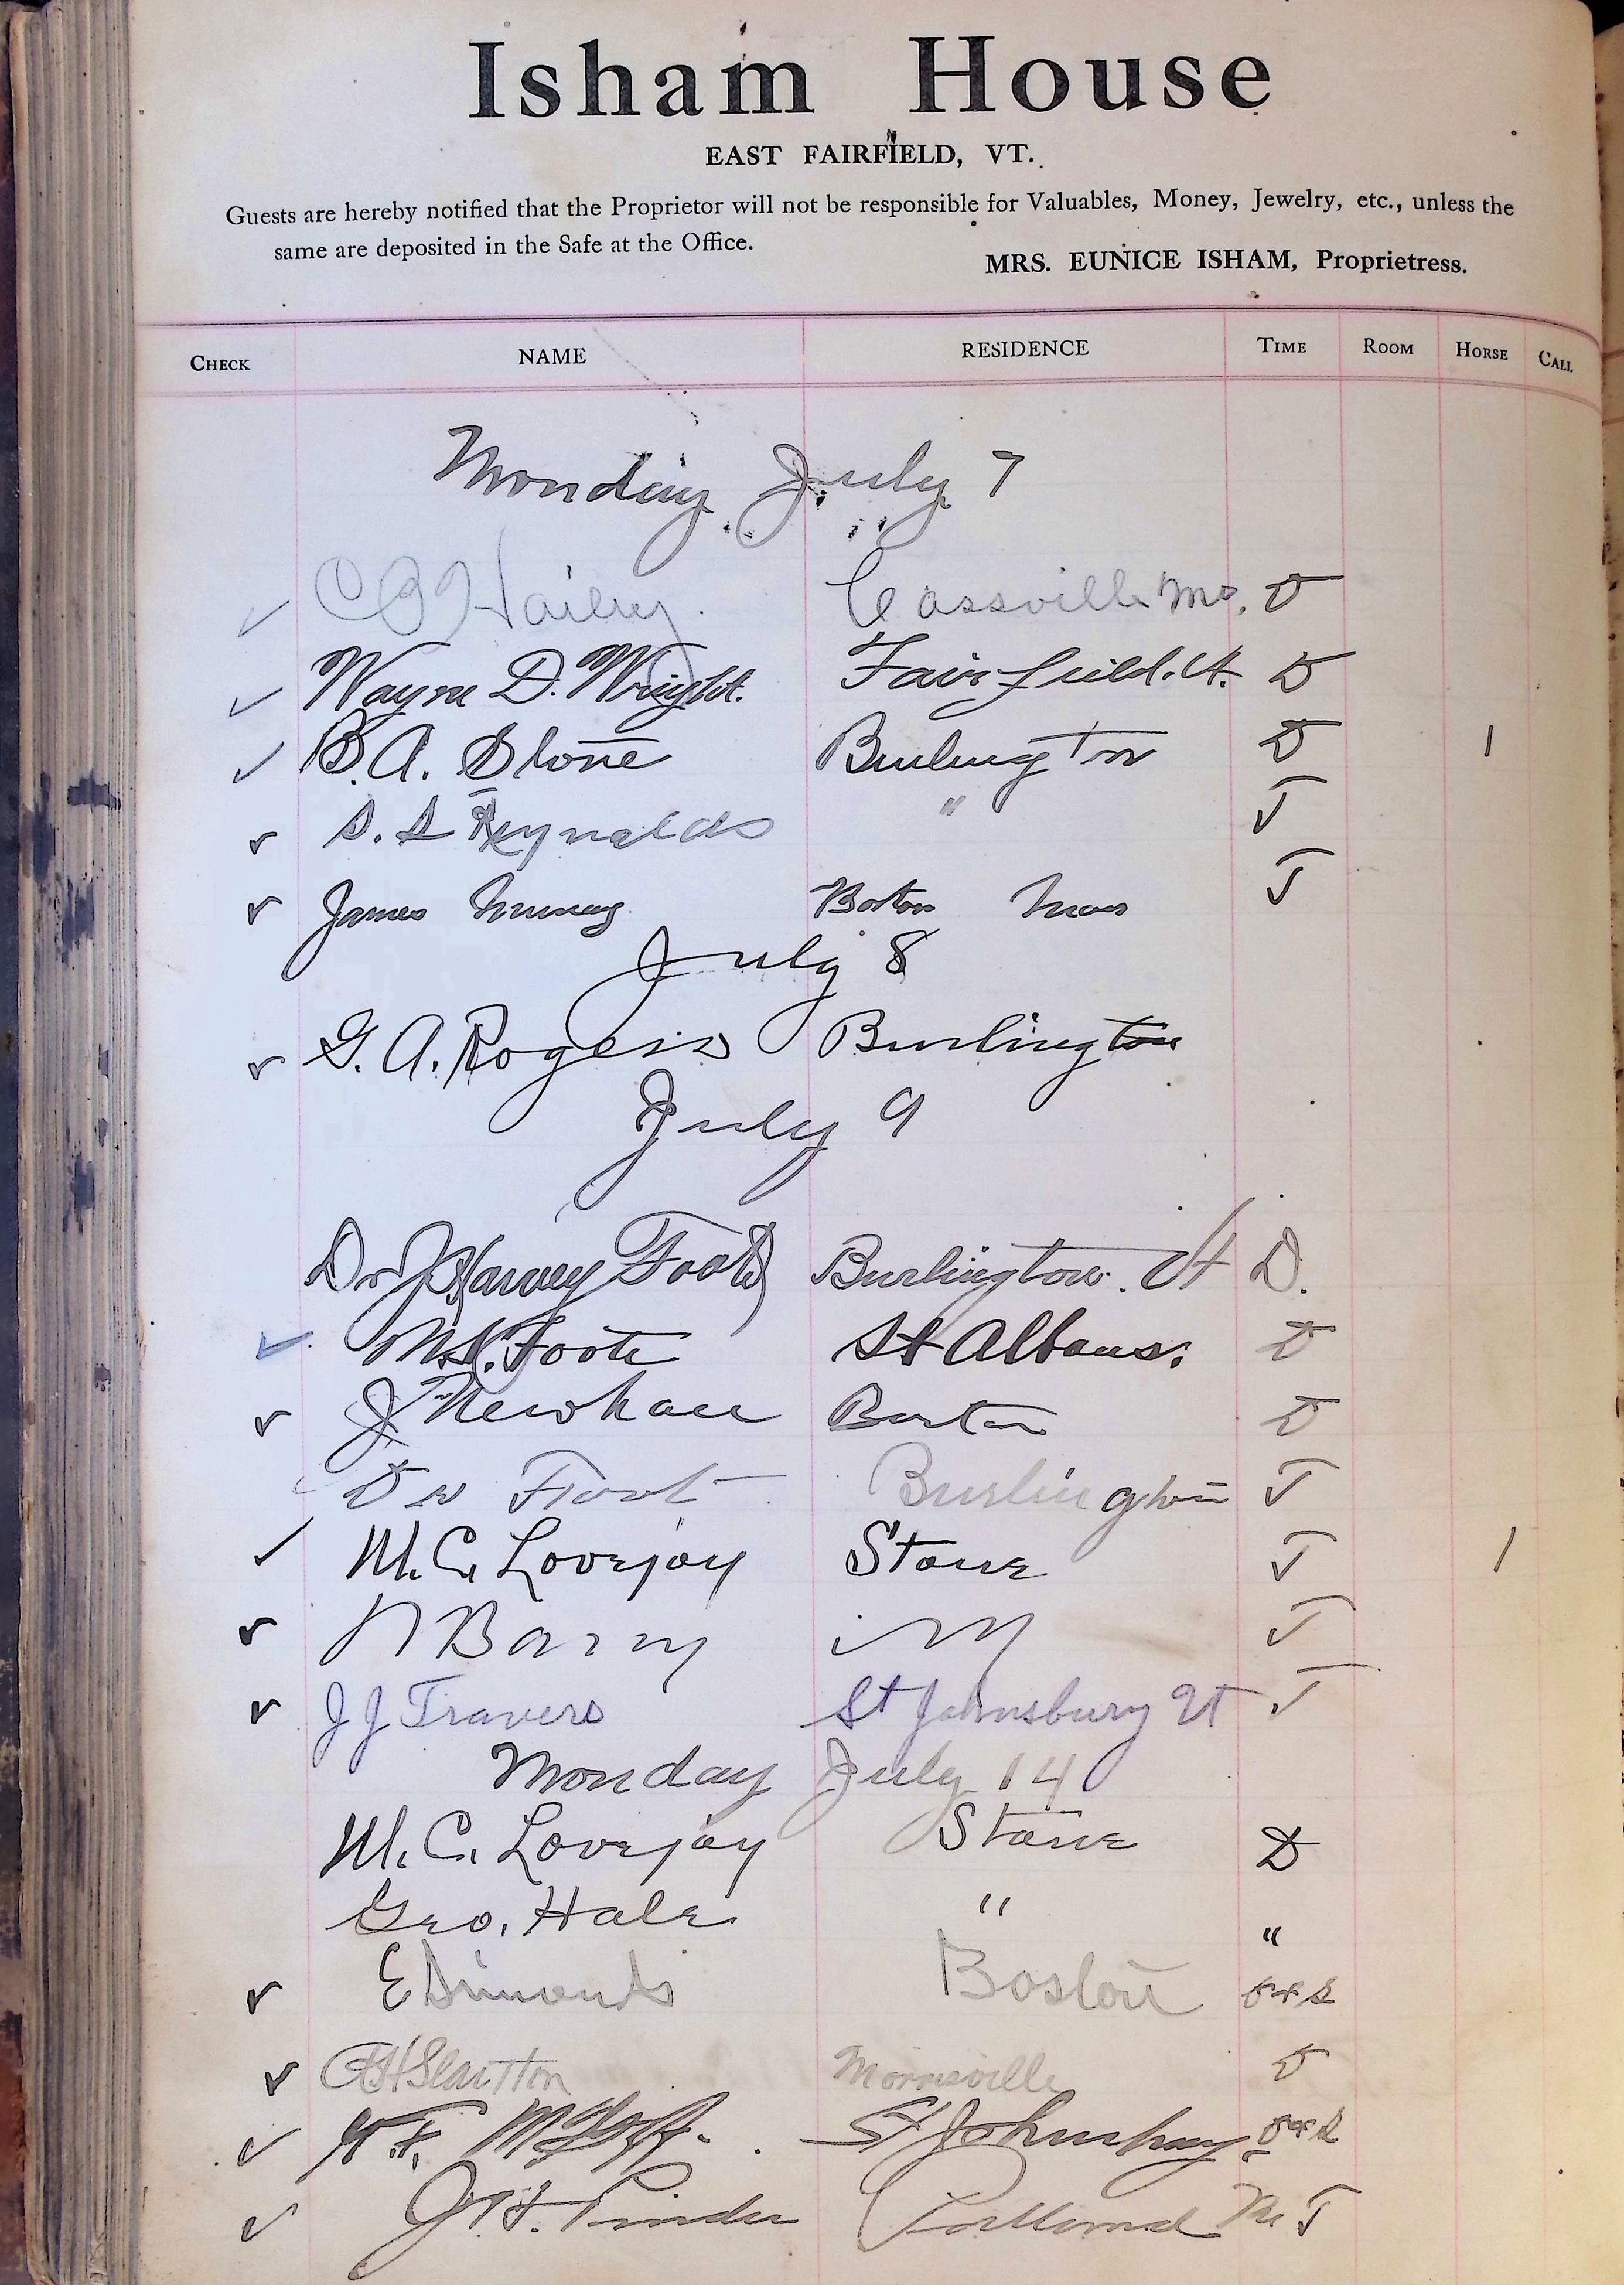 Isham House
EAST FAIRFIELD, VT.
Guests are hereby notified that the Proprietor will not be responsible for Valuables, Money, Jewelry, etc., unless the
same are deposited in the Safe at the Office.
MRS. EUNICE ISHAM, Proprietress.
CHECK NAME RESIDENCE TIME ROOM HORSE CALL
Monday July 7
Cassville Mo. D
Wayne D. Wright. Fairfield. Vt. D
B. A. Stone Burlington D 1
S. S Reynolds " T
James Murray Boston Mass T
July 8
G. A. Rogers Burlington
July 9
Dr J Harvey Foote Burlington. Vt D.
Foote St Albans. D
J Newhall D
Dr Foot Burlington T
M. C. Lovejoy Stowe T 1
N Barry T
J J Travers St Johnsbury Vt T
Monday July 14
M. C. Lovejoy Stowe D
Geo. Hale " "
E Simonds Boston
Morrisville D
St Johnsbury
Pinder Portland Me T